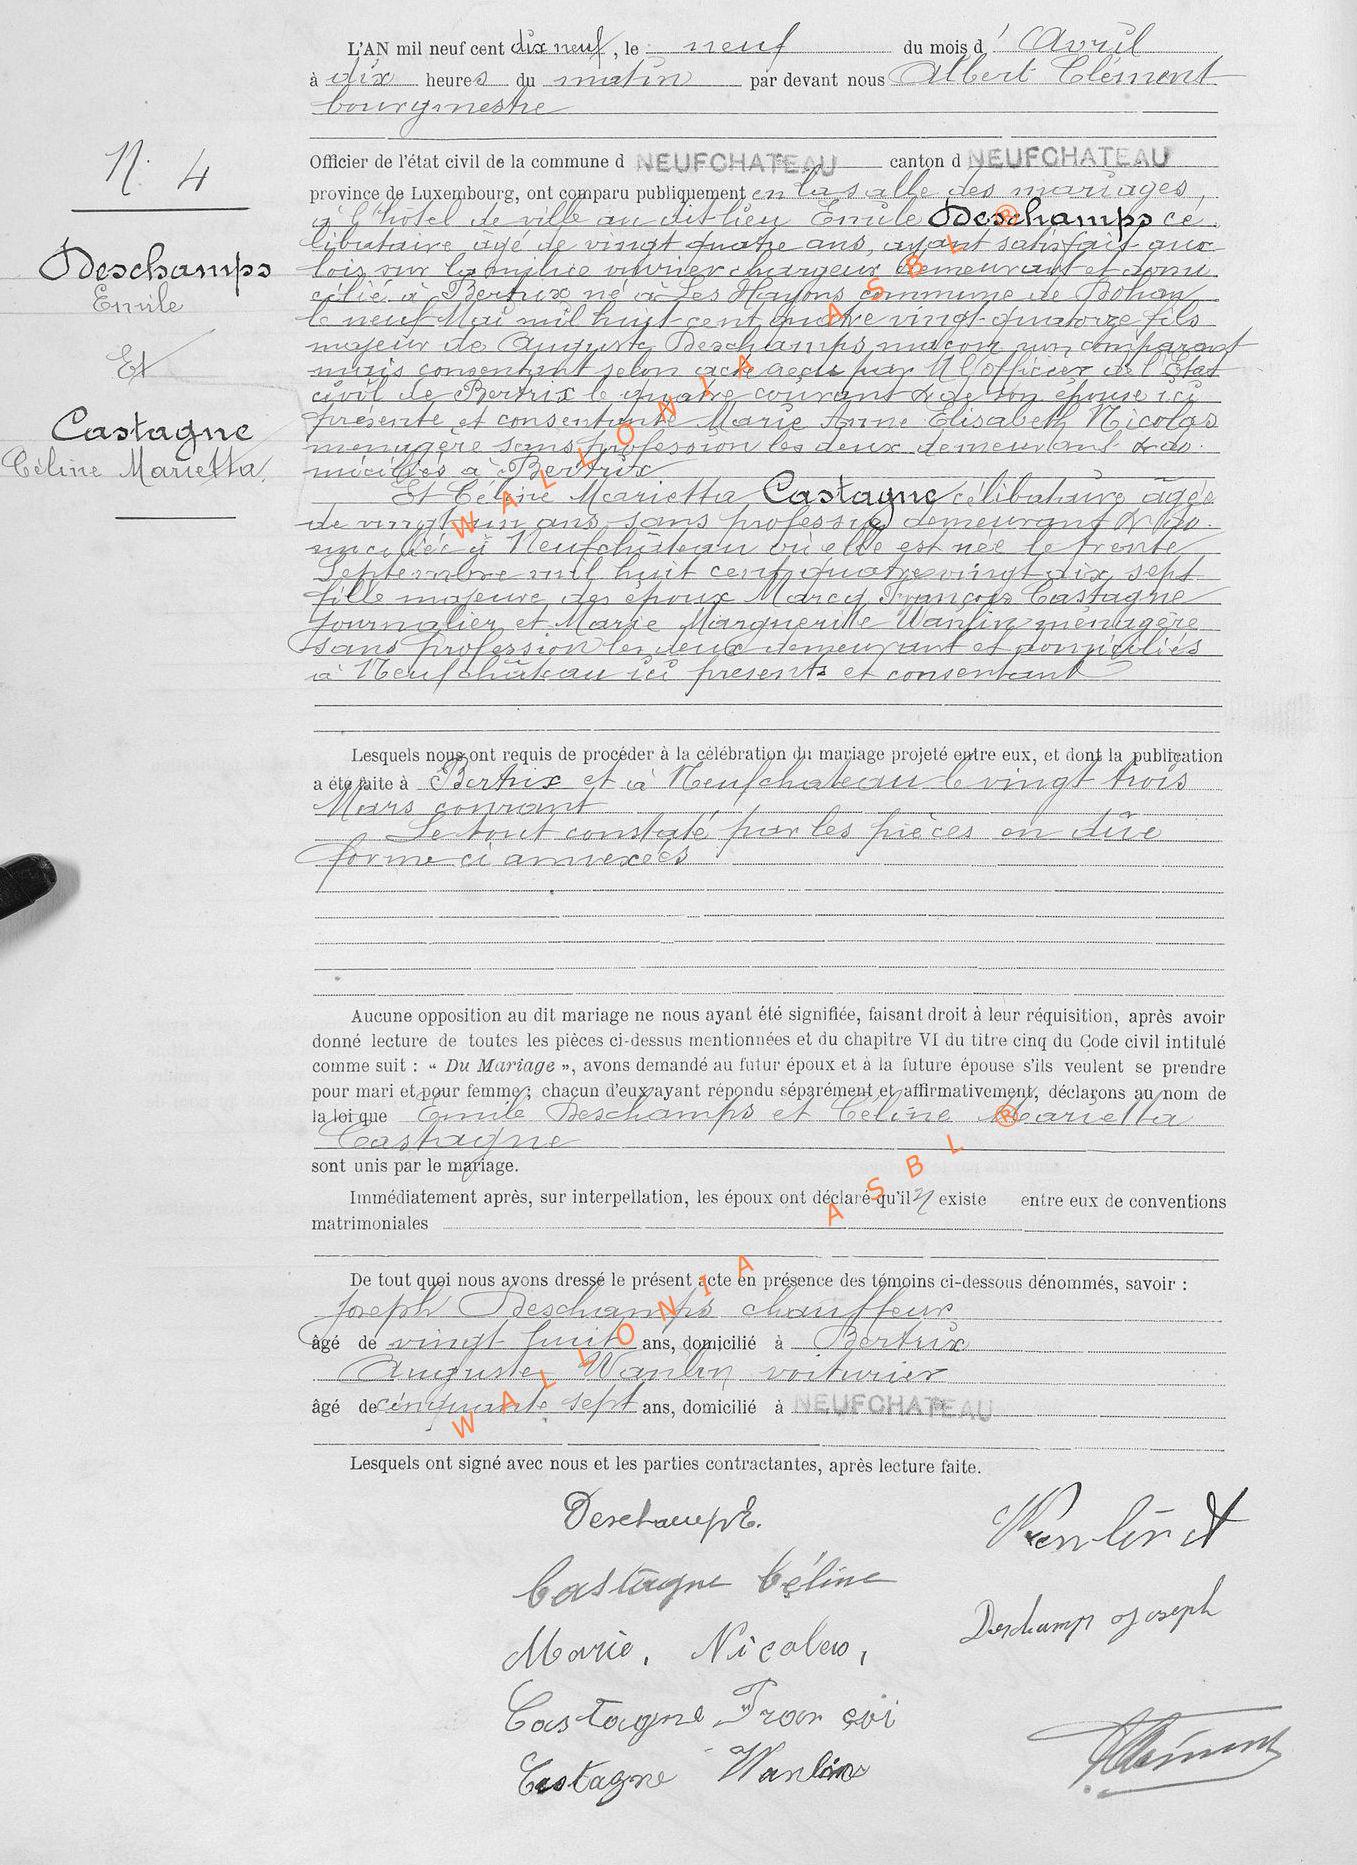 L'AN mil neuf cent dix neuf, le neuf du mois d'Avril
à dix heures du matin par devant nous Albert Clément
bourgmestre
Officier de l'état civil de la commune d NEUFCHATEAU canton d NEUFCHATEAU
N. 4
province de Luxembourg, ont comparu publiquement en la salle des mariages,
à l'hôtel de ville au dit lieu Emile Deschamps cé
libataire âgé de vingt quatre ans, ayant satisfait aux
Deschamps
Emile
lois sur la milice ouvrier chargeur demeurant et domi
cilié à Bertrix né à Les Hayons commune de Dohan
le neuf Mai mil huit cent quatre vingt quatorze fils
majeur de Auguste Deschamps maçon non comparant
Et
mais consentant selon acte reçu par M l'Officier de l'Etat
civil de Bertrix le quatre courant & de son épouse ici
Castagne
Céline Marietta
présente et consentante Marie Anne Elisabeth Nicolas
menagère sans profession les deux demeurant & do
miciliés à Bertrix
Et Céline Marietta Castagne célibataire âgée
de vingt un ans, sans profession demeurant & do
miciliée à Neufchâteau où elle est née le trente
Septembre mil huit cent quatre vingt dix sept
fille majeure des époux Marcq François Castagne
journalier et Marie Marguerite Wanlin ménagère
sans profession les deux demeurant et domiciliés
à Neufchâteau ici presents et consentant
Lesquels nous ont requis de procéder à la célébration du mariage projeté entre eux, et dont la publication
a été faite à Bertrix et à Neufchateau le vingt trois
Mars courant
Le tout constaté par les pièces en dûe
forme ci annexées
Aucune opposition au dit mariage ne nous ayant été signifiée, faisant droit à leur réquisition, après avoir
donné lecture de toutes les pièces ci-dessus mentionnées et du chapitre VI du titre cinq du Code civil intitulé
comme suit : « Du Mariage », avons demandé au futur époux et à la future épouse s'ils veulent se prendre
pour mari et pour femme ; chacun d'eux ayant répondu séparément et affirmativement, déclarons au nom de
la loi que Emile Deschamps et Céline Marietta
Castagne
sont unis par le mariage.
Immédiatement après, sur interpellation, les époux ont déclaré qu'il n'existe entre eux de conventions
matrimoniales
De tout quoi nous avons dressé le présent acte en présence des témoins ci-dessous dénommés, savoir :
Joseph Deschamps chauffeur
âgé de vingt huit ans, domicilié à Bertrix
Auguste Wanlin voiturier
âgé de cinquante sept ans, domicilié à NEUFCHATEAU
Lesquels ont signé avec nous et les parties contractantes, après lecture faite.
Deschamps E.
Wanlin A
Castagne Céline
Deschamps Joseph
Marie, Nicolas,
Castagne Françoi
AClément
Castagne Wanlin
WALLONIA ASBL ®
WALLONIA ASBL ®